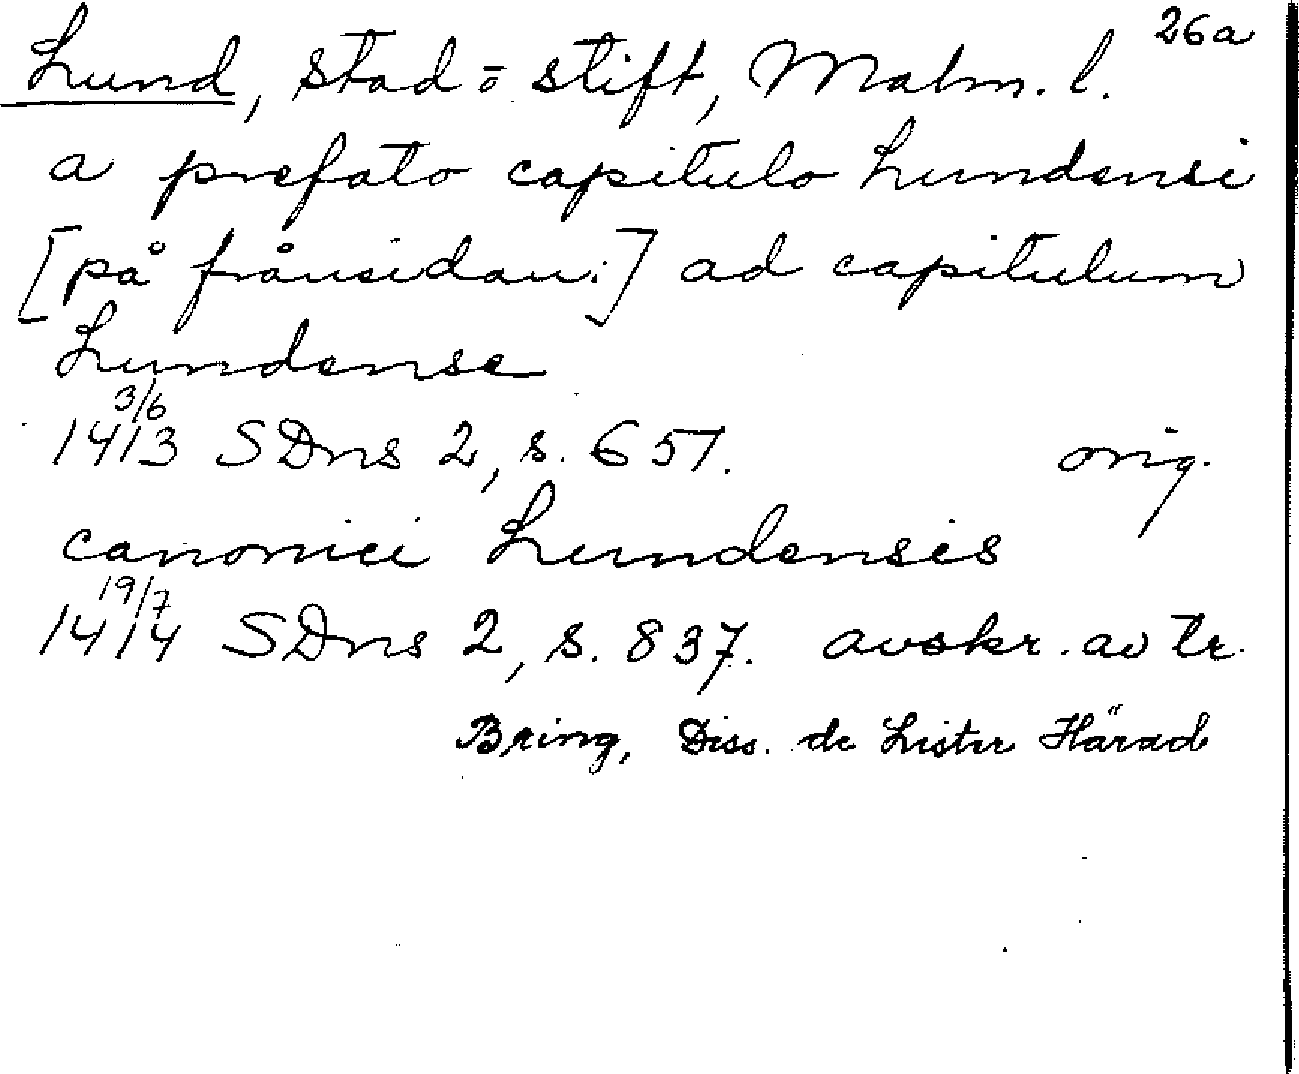 26a
Lund, stad o stift, Malm. l.
a prefato capitulo Lundensi
[på frånsidan:] ad capitulum
Lundense
3/6
1413 SDns 2, s. 657. orig.
canonici Lundensis
19/7
1414 SDns 2, s. 837. avskr. av tr.
Bring, Diss. de Lister Härad